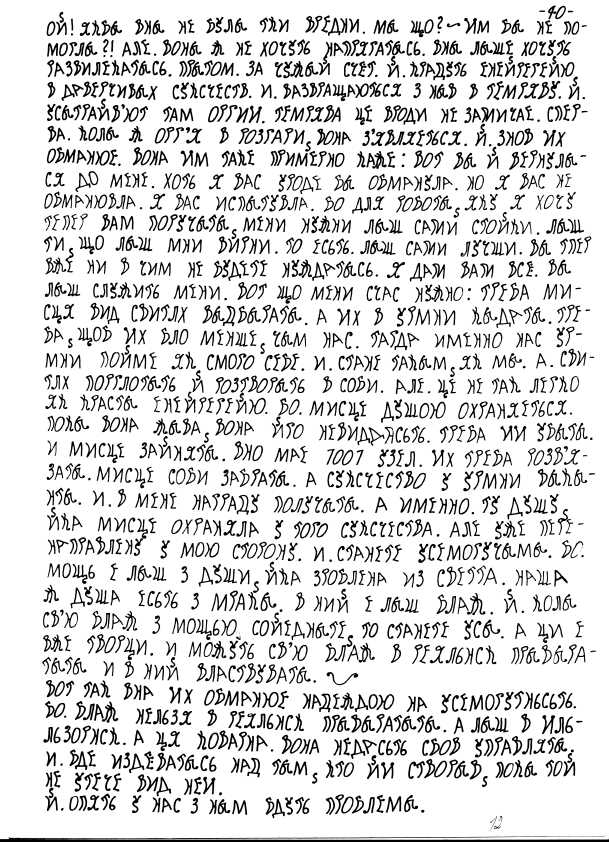 -40-
ОЙ! ЯКБЫ ВНЫ НЕ БУЛЫ ТКИ ВРЕДНИ. МЫ ЩО? ИМ БЫ НЕ ПО-
МОГЛЫ?! АЛЕ. ВОНЫ Ж НЕ ХОЧУТЬ НАПРЯГАТЫСЬ. ВНЫ ЛЫШЕ ХОЧУТЬ
РАЗВИЛЕКАТЫСЬ. ПРЫТОМ. ЗА ЧУЖЫЙ СЧЕТ. Й. КРАДУТЬ ЕНЕЙРЕГЕЙЮ
В ДАВЕРЧИВЫХ СУКСЧЕСТВ. И. РАЗВРАЩАЮТЬСЯ З НЫВ В ТЕМРЯВУ. Й.
УСТРАЙВ'ЮТ ТАМ ОРГИИ. ТЕМРЯВА ЦЕ ВРОДИ НЕ ЗАМИЧАЕ. СПЕР-
ВА. КОЛЫ Ж ОРГ'Я В РОЗГАРИ, ВОНА З'ЯВЛЯЕТЬСЯ. Й. ЗНОВ ИХ
ОБМАНЮЕ. ВОНА ИМ ТАКЕ ПРИМЕРНО КАЖЕ: ВОТ ВЫ Й ВЕРНУЛЫ-
СЯ ДО МЕНЕ. ХОТЬ Я ВАС УРОДЕ БЫ ОБМАНУЛА. НО Я ВАС НЕ
ОБМАНЮВЛА. Я ВАС ИСПЫТУВЛА. БО ДЛЯ РОБОТЫ, ЯКУ Я ХОЧУ
ТЕПЕР ВАМ ПОРУЧЫТЫ, МЕНИ НУЖНИ ЛЫШ САМИ СТОЙКИ. ЛЫШ
ТИ, ЩО ЛЫШ МНИ ВИРНИ. ТО ЕСЬТЬ. ЛЫШ САМИ ЛУЧШИ. ВЫ ТПЕР
ВЖЕ НИ В ЧИМ НЕ БУДЕТЕ НУЖДАТЫСЬ. Я ДАМ ВАМ ВСЕ. ВЫ
ЛЫШ СЛУЖИТЬ МЕНИ. ВОТ ЩО МЕНИ СЧАС НУЖНО: ТРЕБА МИ-
СЦЯ ВИД СВИТЛХ ВЫДЫРАТЫ. А ИХ В УРМНИ КЫДАТЫ. ТРЕ-
БА, ЩОБ ИХ БЛО МЕНШЕ, ЧЫМ НАС. ТАГДА ИМЕННО НАС УР-
МНИ ПОЙМЕ ЯК СМОГО СЕБЕ. И. СТАНЕ ТАКЫМ, ЯК МЫ. А. СВИ-
ТЛХ ПОРГЛОТЫТЬ Й РОЗТВОРЫТЬ В СОБИ. АЛЕ. ЦЕ НЕ ТАК ЛЕГКО
ЯК КРАСТЫ ЕНЕЙРЕГЕЙЮ. БО. МИСЦЕ ДУШОЮ ОХРАНЯЕТЬСЯ.
ПОКЫ ВОНА ЖЫВА, ВОНА ЙГО НЕВИДДАСЬТЬ. ТРЕБА ИИ УБЫТЫ.
И МИСЦЕ ЗАЙНЯТЫ. ВНО МАЕ 7007 УЗЕЛ. ИХ ТРЕБА РОЗВ'Я-
ЗАТЫ. МИСЦЕ СОБИ ЗАБРАТЫ. А СУКСЧЕСТВО У УРМНИ ВЫКЫ-
НТЫ. И. В МЕНЕ НАГРАДУ ПОЛУЧЫТЫ. А ИМЕННО. ТУ ДУШУ,
ЙКА МИСЦЕ ОХРАНЯЛА У ТОГО СУКСЧЕСТВА. АЛЕ УЖЕ ПЕРЕ-
НАПРАВЛЕНУ У МОЮ СТОРОНУ. И. СТАНЕТЕ УСЕМОГУЧЫМЫ. БО.
МОЩЬ Е ЛЫШ З ДУШИ, ЙКА ЗРОБЛЕНА ИЗ СВЕТТА. НАША
Ж ДУША ЕСЬТЬ З МРАКЫ. В НИЙ Е ЛЫШ ВЛАЖ. Й. КОЛЫ
СВ'Ю ВЛАЖ З МОЩЬЮ СОЙЕДНЫТЕ, ТО СТАНЕТЕ УСЫ. А ЦИ Е
ВЖЕ ТВОРЦИ. И МОЖУТЬ СВ'Ю ВЛАЖ В РЕЯЛЬНСЬ ПРЫВЫРА-
ТЫТЫ И В НИЙ ВЛАСТВУВАТЫ.
ВОТ ТАК ВНА ИХ ОБМАНЮЕ НАДЕЖДОЮ НА УСЕМОГУТНЬСЬТЬ.
БО. ВЛАЖ НЕЛЬЗЯ В РЕЯЛЬНСЬ ПРЫВЫРАТЫТЫ. А ЛЫШ В ИЛЬ-
ЛЬЗОРНСЬ. А ЦЯ КОВАРНА. ВОНА НЕДАСЬТЬ СБОВ УПРАВЛЯТЫ.
И. БДЕ ИЗДЕВАТЫСЬ НАД ТЫМ, КТО ЙИ СТВОРЫВ, ПОКЫ ТОЙ
НЕ УТЕЧЕ ВИД НЕИ.
Й. ОПЯТЬ У НАС З НЫМ БДУТЬ ПРОБЛЕМЫ.
12